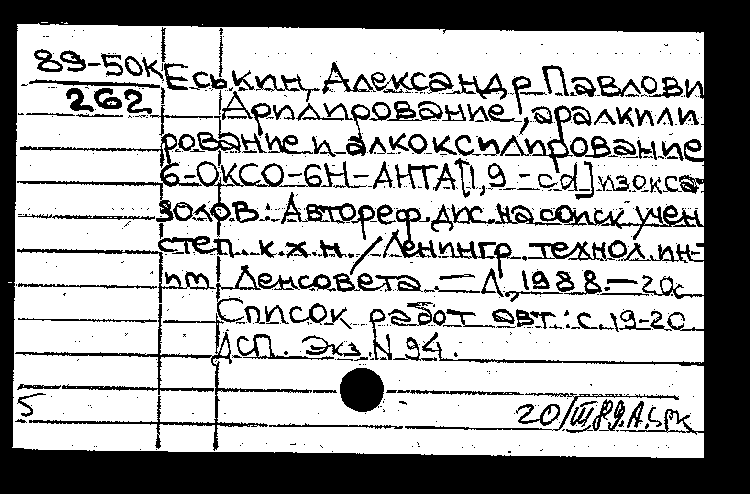 89-50К
262
Еськин, Александр Павлови
Арилирование, аралкили
рование и алкоксилирование
6-ОКСО-6Н-АНТА[1,9-cd]изокса-
золов: Автореф. дис. на соиск. учен
степ. к.х.н. / Ленингр. технол. ин-
т Ленсовета. — Л., 1988. — 20с
Список работ авт.: с. 19-20
ДСП. Экз. N 94.
5
20/III 89.